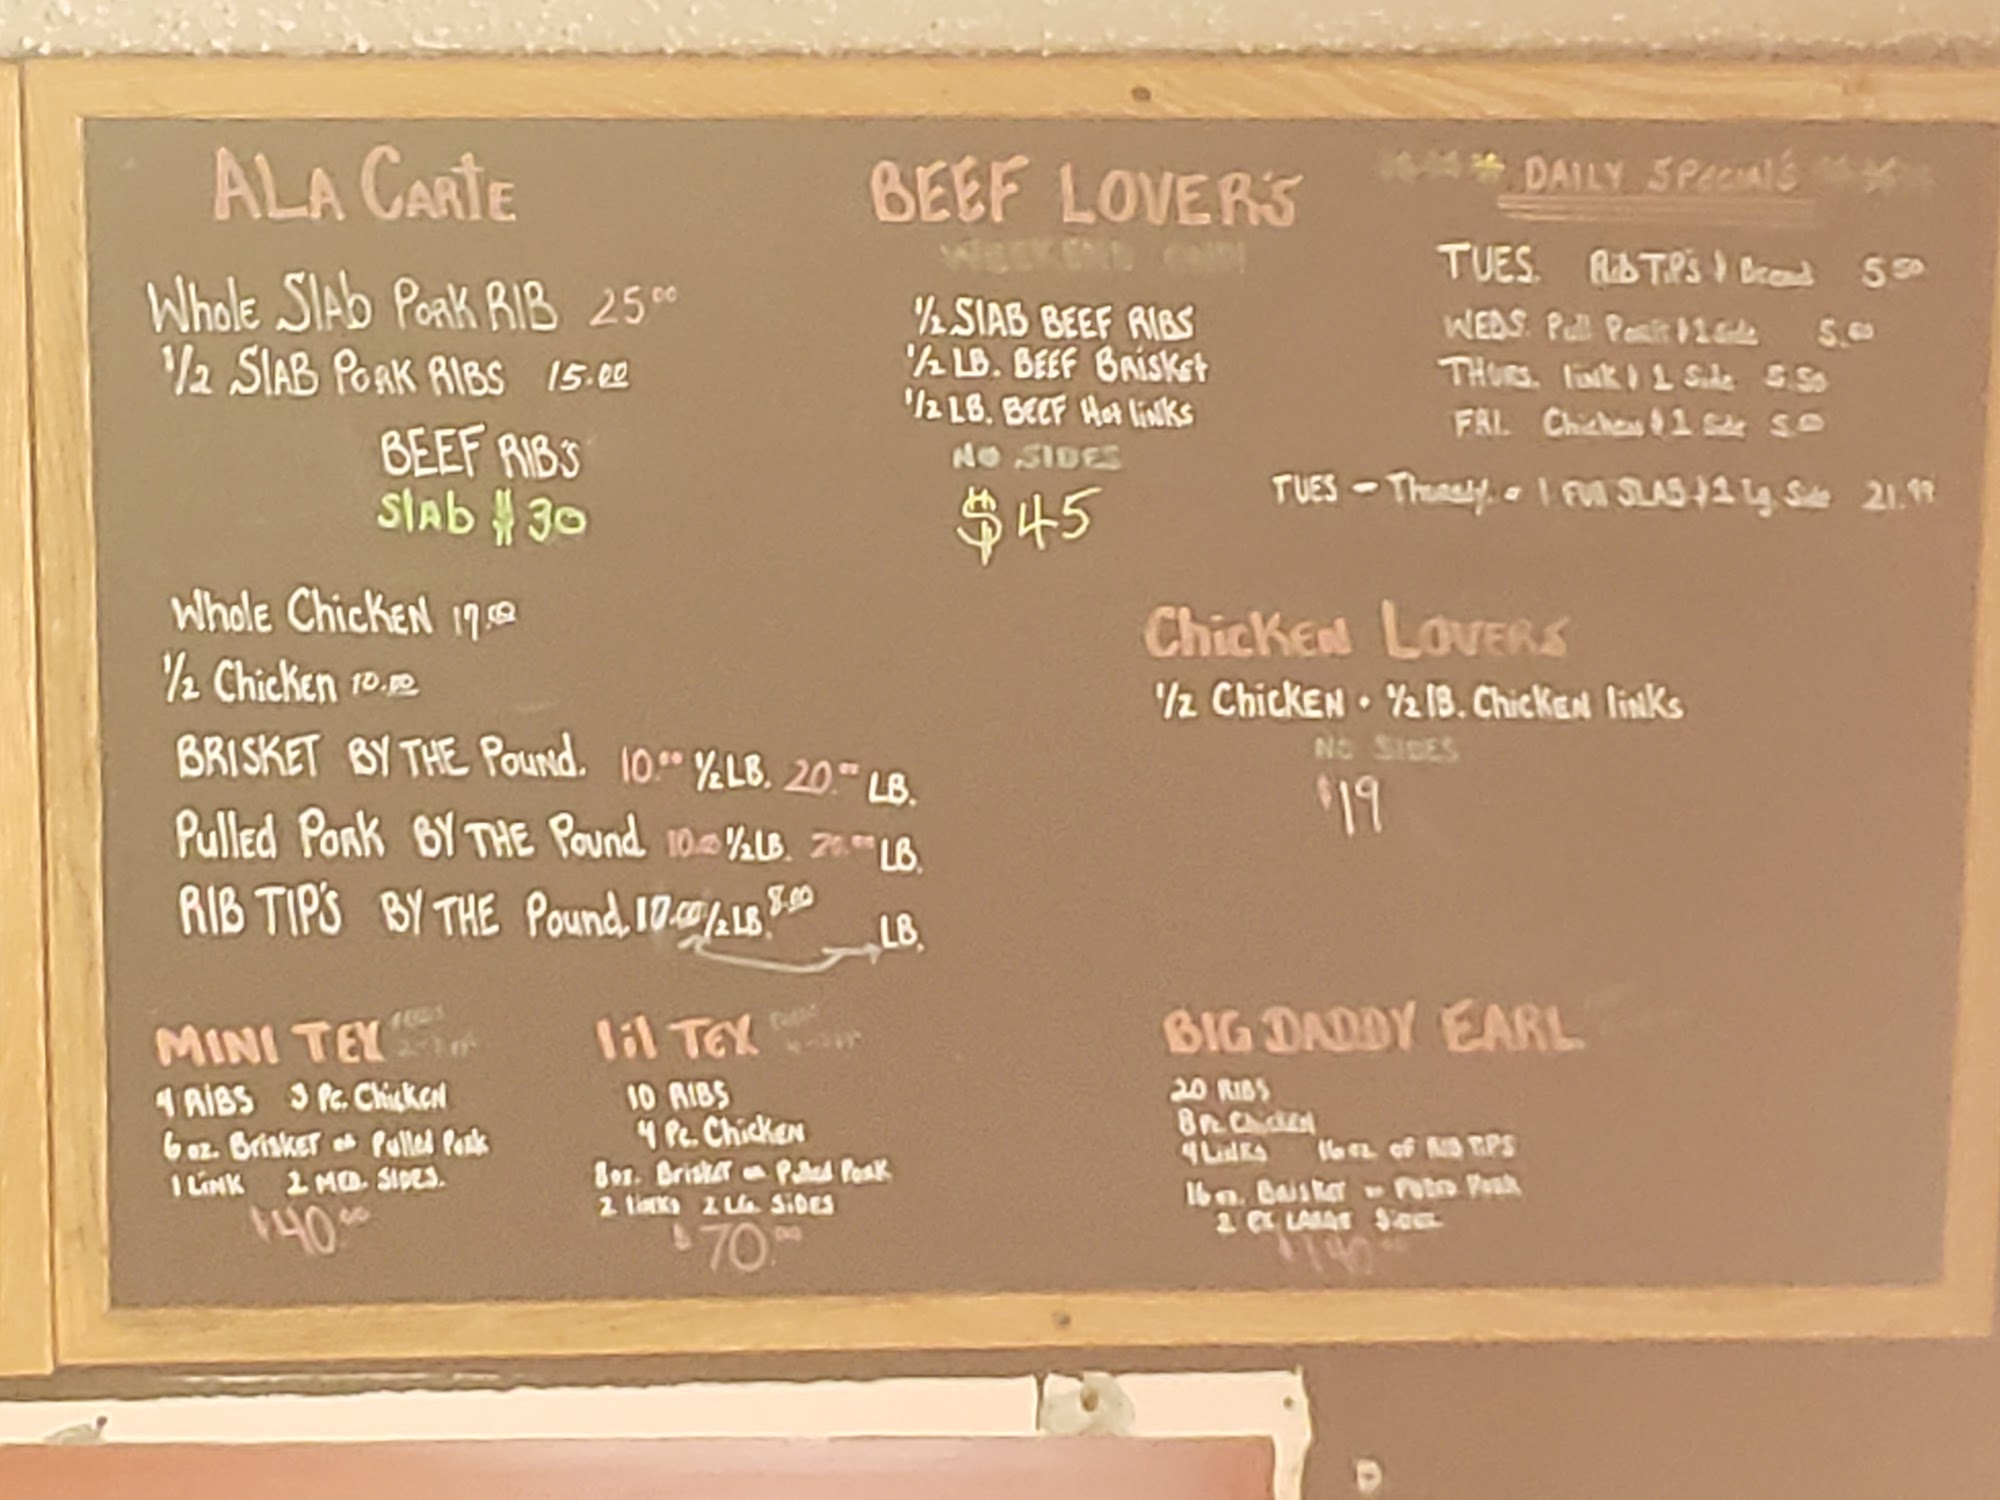 ALA CARTE
Whole Slab Pork RIB 25.00
1/2 SLAB PORK RIBS 15.00
BEEF RIB'S
Slab $30
Whole Chicken 17.00
1/2 Chicken 10.00
BRISKET BY THE Pound. 10.00 1/2 LB. 20.00 LB.
Pulled PORK BY THE Pound 10.00 1/2 LB. 20.00 LB.
RIB TIP'S BY THE Pound. 10.00 1/2 LB. 8.00 LB.
BEEF LOVER'S
WEEKEND ONLY
1/2 SLAB BEEF RIBS
1/2 LB. BEEF Brisket
1/2 LB. BEEF Hot links
NO SIDES
$45
DAILY SPECIAL'S
TUES. Rib TIP'S & Bread 5.50
WEDS. Pull Pork & 1 Side 5.00
THURS. link & 1 Side 5.50
FRI. Chicken & 1 Side 5.00
TUES - Thursday. 1 Full SLAB & 1 Lg. Side 21.99
Chicken LOVERS
1/2 Chicken • 1/2 lB. Chicken links
NO SIDES
$19
MINI TEX
4 RIBS 3 Pc. Chicken
6 oz. Brisket or Pulled Pork
1 LINK 2 MED. SIDES.
$40.00
lil TEX
10 RIBS
4 Pc. Chicken
8oz. Brisket or Pulled Pork
2 links 2 LG. SIDES
$70.00
BIG DADDY EARL
20 RIBS
8 Pc. Chicken
4 Links 16 oz. OF RIB TIPS
16 oz. Brisket or Pulled Pork
2 EX LARGE Sides
$140.00